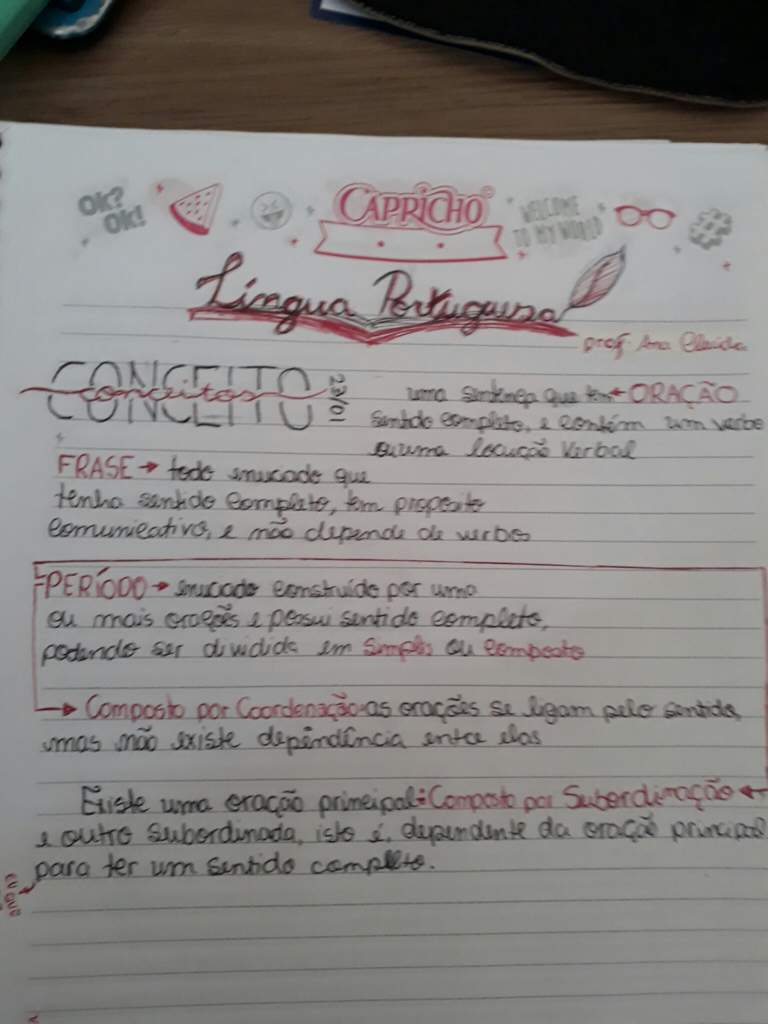 Ok?
Ok!
CAPRICHO
WELCOME
TO MY WORLD
#
Língua Portuguesa
prof: Ana Claúdia
CONCEITO
conceitos
23/01
uma sentença que tem ← ORAÇÃO
sentido completo, e contém um verbo
ou uma locução verbal
FRASE → todo enucado que
tenha sentido completo, tem proposito
comunicativo, e não depende de verbo
PERÍODO → enucado construído por uma
ou mais orações e possui sentido completo,
podendo ser dividida em simples ou composto
→ Composto por Coordenação as orações se ligam pelo sentido,
mas não existe depêndência entre elas
Existe uma oração principal: Composto por Subordinação ←
e outro subordinada, isto é, dependente da oração principal
para ter um sentido completo.